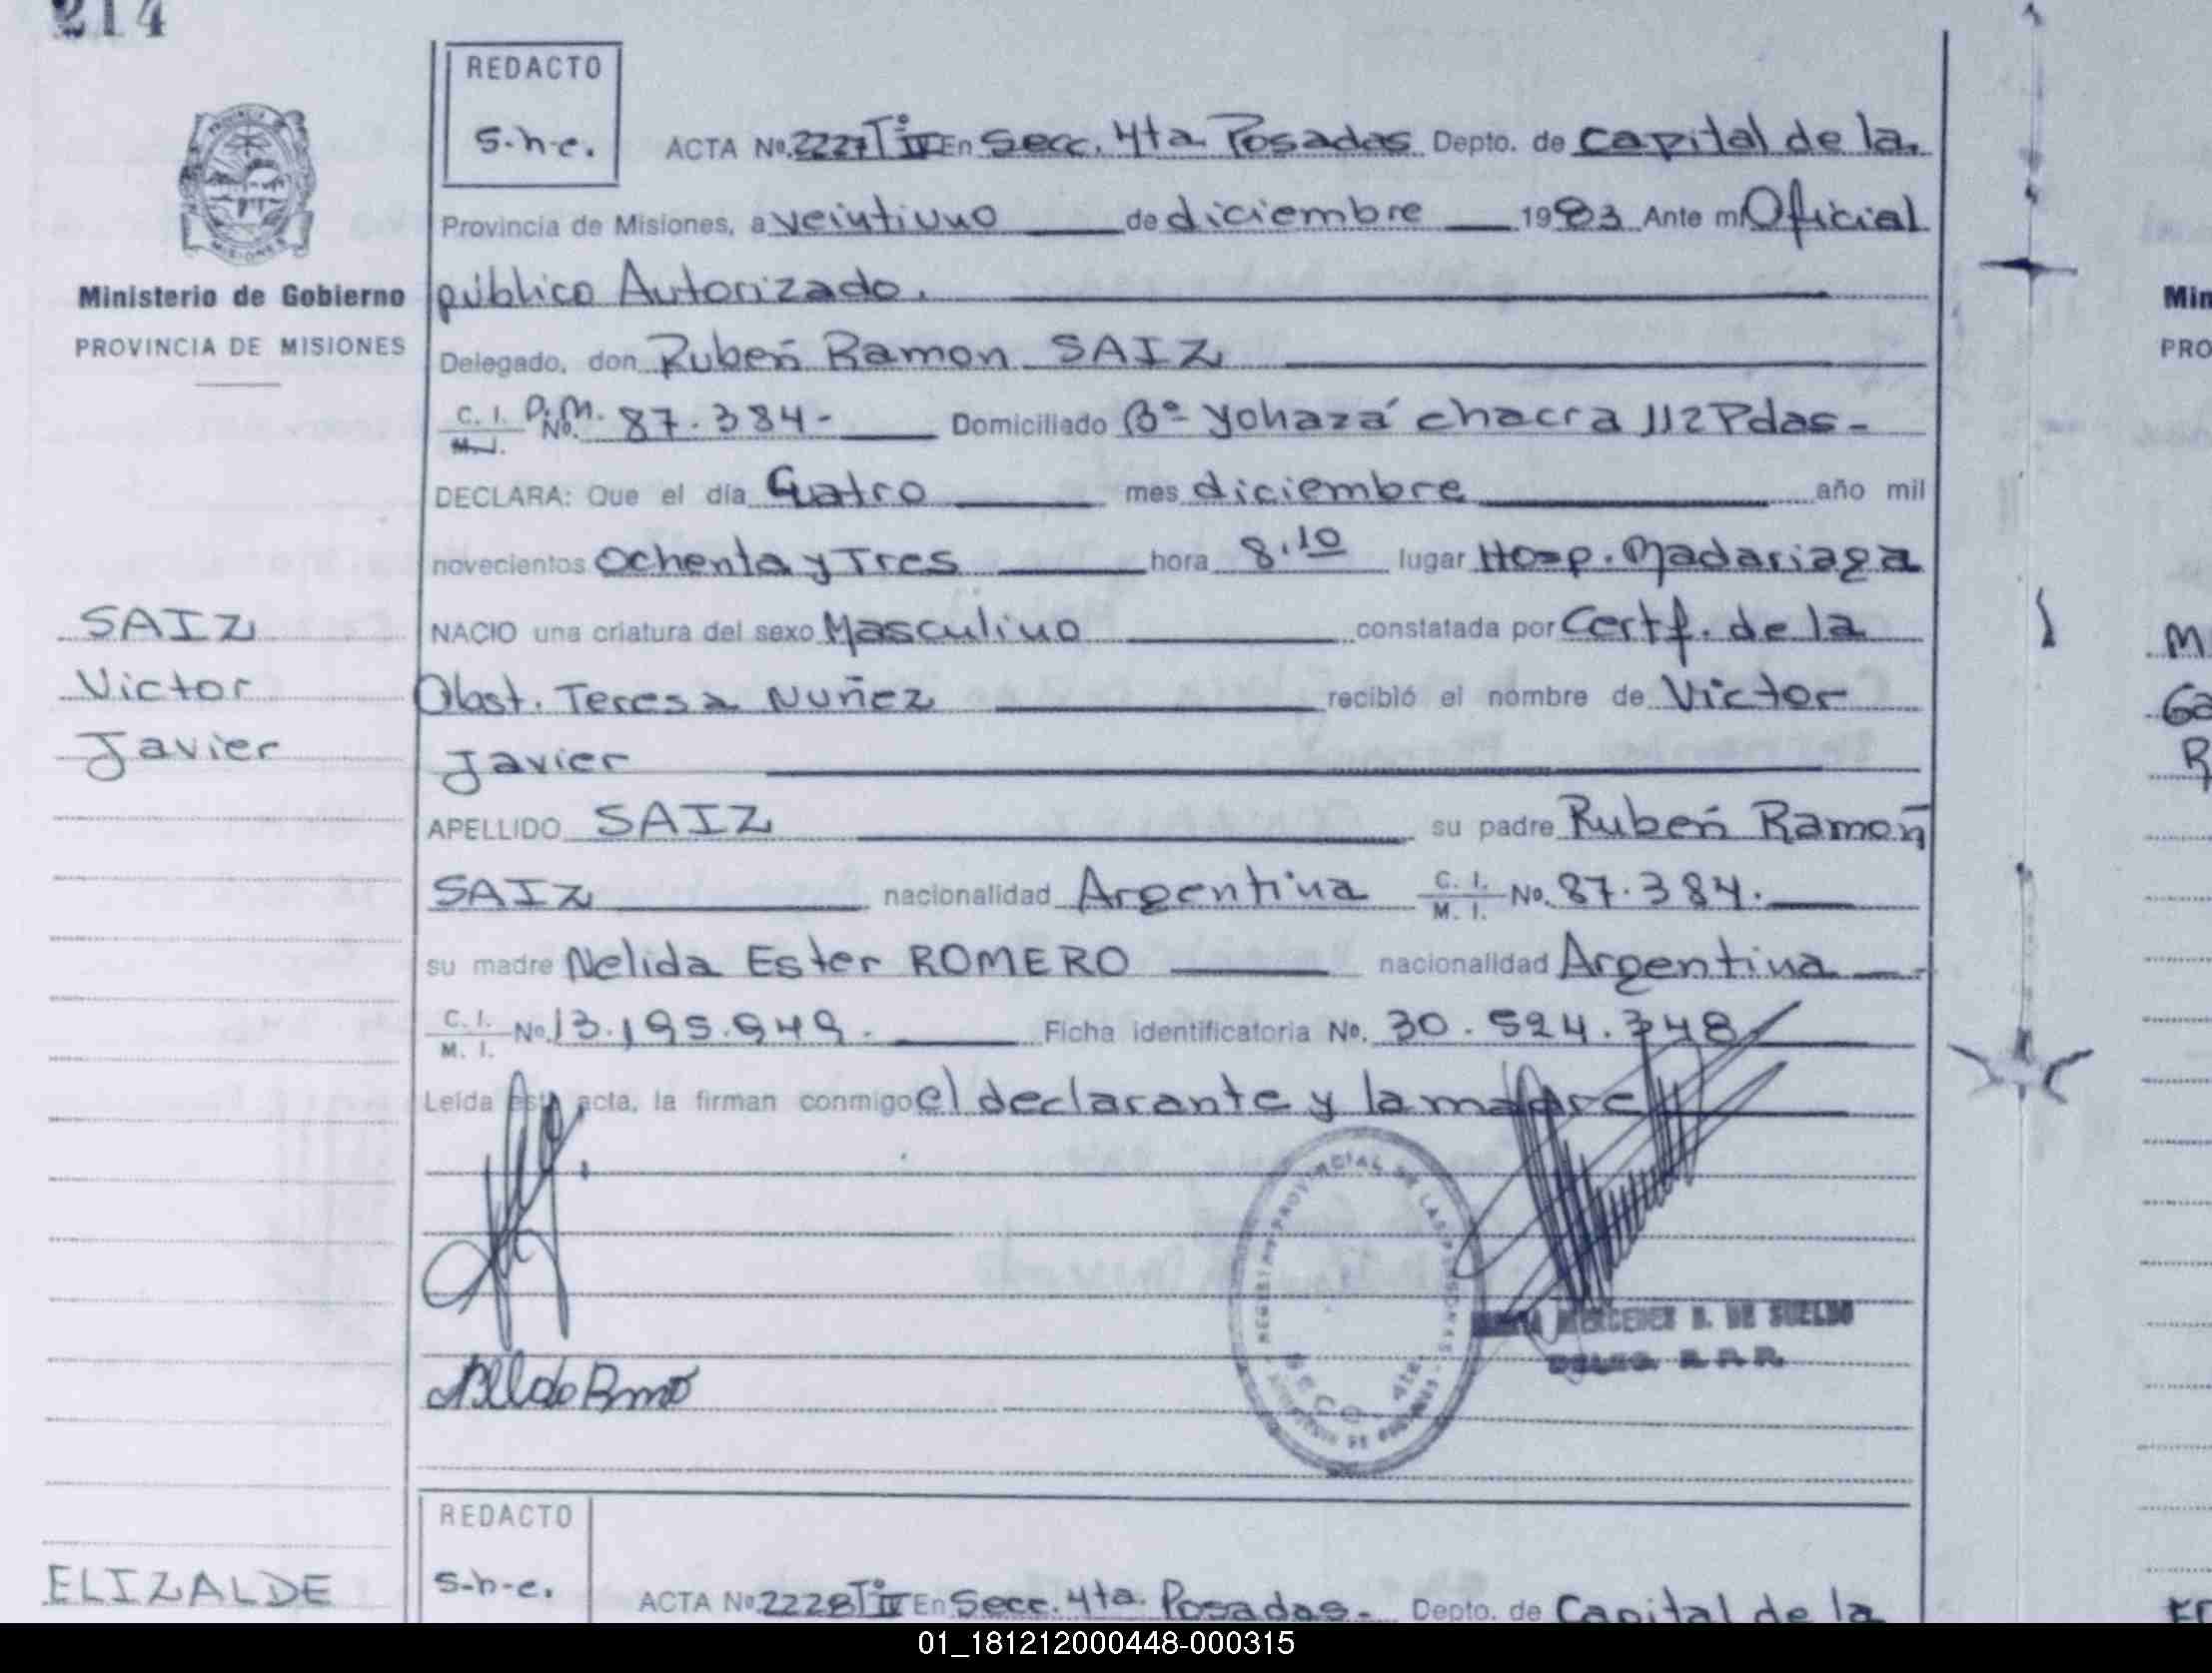 214
REDACTO
s-h-e.
ACTA No. 2227 Tº IV En Secc. 4ta Posadas Depto. de Capital de la
Provincia de Misiones, a veintiuno de diciembre 1983 Ante mi Oficial
Ministerio de Gobierno
PROVINCIA DE MISIONES
público Autorizado.
Delegado, don Rubén Ramon SAIZ
C. I. D.M. No. 87.384- Domiciliado Bº Yohazá chacra 112 Pdas-
M. I.
DECLARA: Que el día Cuatro mes diciembre año mil
novecientos Ochenta y Tres hora 8,10 lugar Hosp. Madariaga
SAIZ
Victor
Javier
NACIO una criatura del sexo Masculino constatada por Certf. de la
Obst. Teresa Nuñez recibió el nombre de Victor
Javier
APELLIDO SAIZ su padre Rubén Ramoń
SAIZ nacionalidad Argentina C. I. M. I. No. 87.384.
su madre Nelida Ester ROMERO nacionalidad Argentina
C. I. M. I. No. 13.195.949. Ficha identificatoria No. 30.524.348
Leída esta acta, la firman conmigo el declarante y la madre
REGISTRO PROVINCIAL DE LAS PERSONAS
SECC 4ta.
MERCEDES DE SUELDO
REDACTO
s-h-e.
ELIZALDE
ACTA No. 2228 Tº IV En Secc. 4ta. Posadas- Depto. de Capital de la
Min
PRO
M
Ga
R
01_181212000448-000315